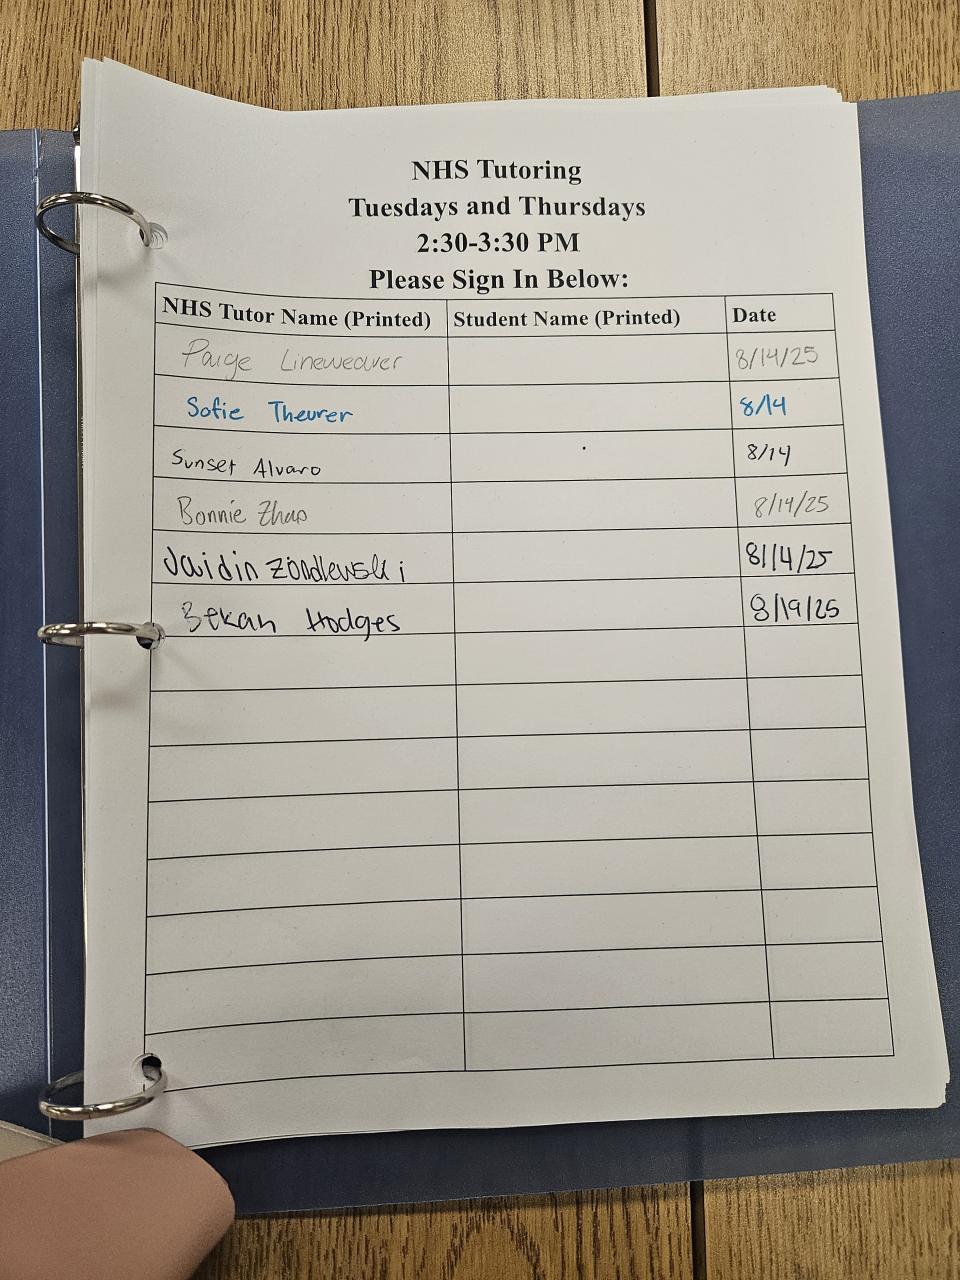 NHS Tutoring
Tuesdays and Thursdays
2:30-3:30 PM
Please Sign In Below:
NHS Tutor Name (Printed) Student Name (Printed) Date
Paige Lineweaver 8/14/25
Sofie Theurer 8/14
Sunset Alvaro 8/14
Bonnie Zhao 8/14/25
Jaidin Zondlewski 8/14/25
Bekah Hodges 8/19/25